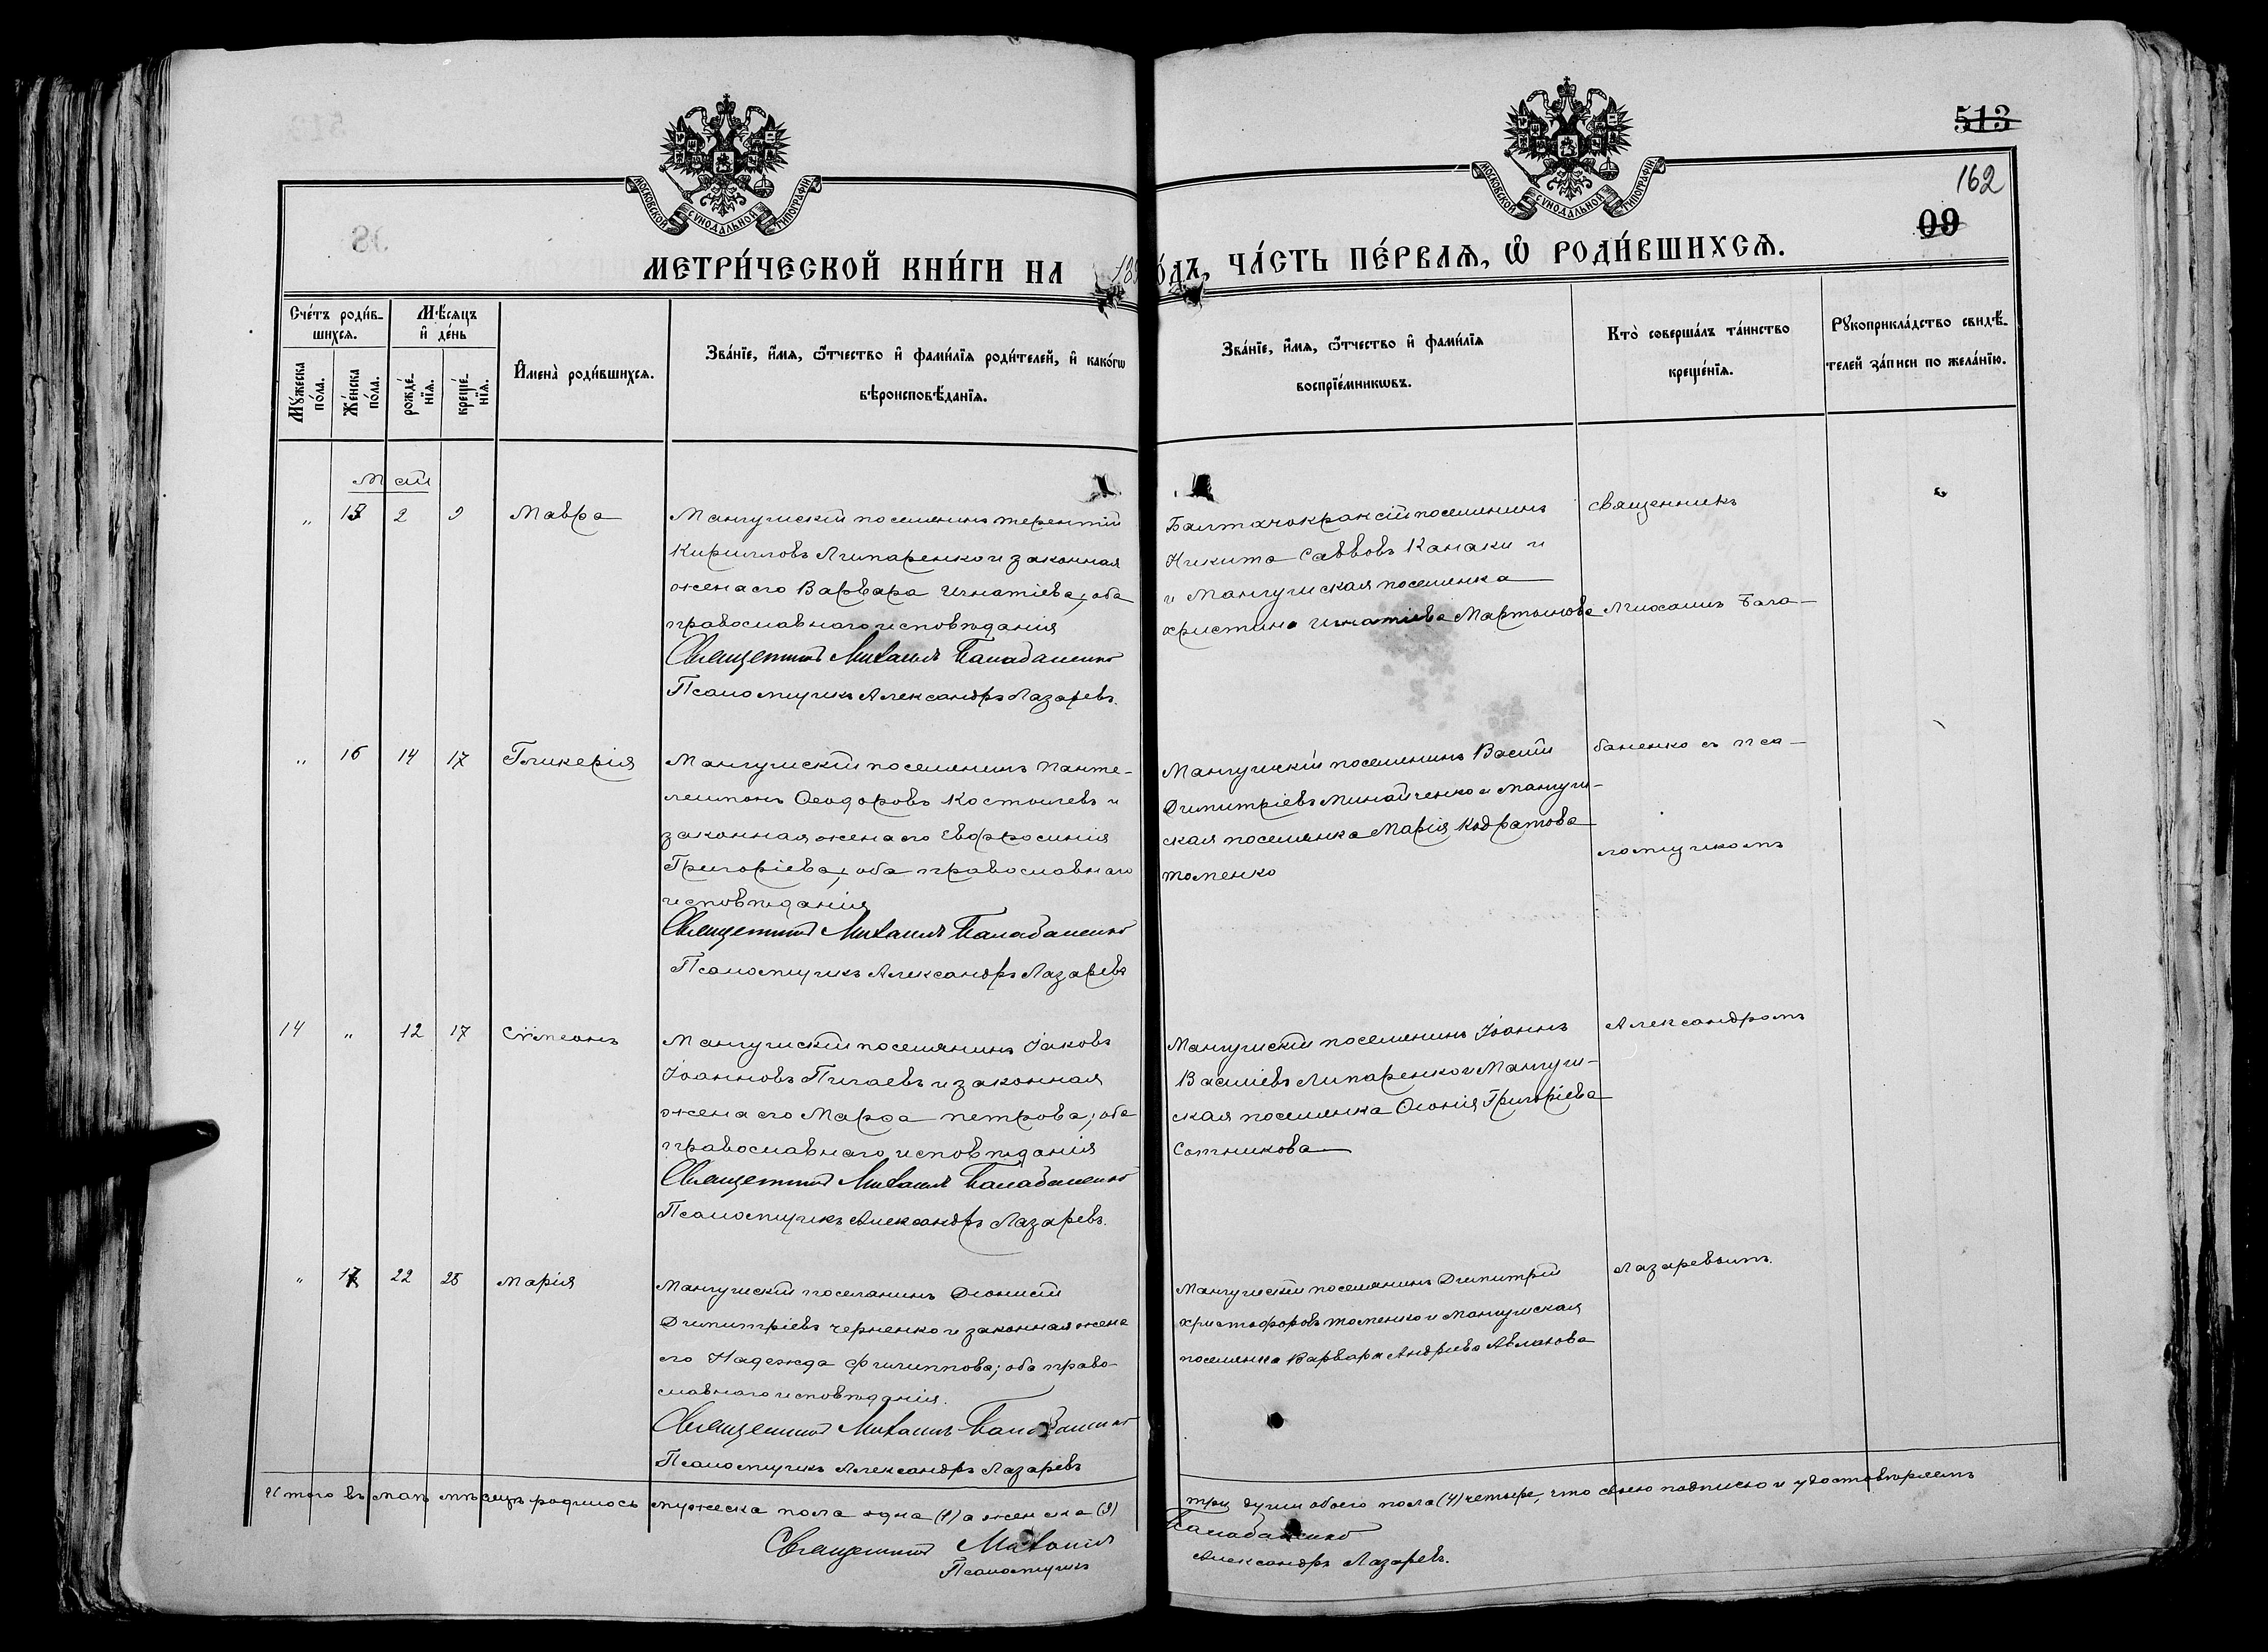 МОСКОВСКОЙ СѴНОДАЛЬНОЙ ТИПОГРАФІИ
МОСКОВСКОЙ СѴНОДАЛЬНОЙ ТИПОГРАФІИ
513
162
09
МЕТРИ́ЧЕСКОЙ КНИ́ГИ НА 189 го́дъ, ЧА́СТЬ ПЕ́РВАѦ, Ѡ҆ РОДИ́ВШИХСѦ.
Сче́тъ роди́в-
шихсѧ.
Мѣ́сѧцъ
и҆ де́нь
Мꙋ́жеска по́ла.
Же́нска по́ла.
рожде́-нїѧ.
креще́-нїѧ.
И҆мена̀ роди́вшихсѧ.
Зва́нїе, и҆́мѧ, ѻ҆́тчество и҆ фами́лїѧ роди́телей, и҆ како́гѡ
вѣроисповѣ́данїѧ.
Зва́нїе, и҆́мѧ, ѻ҆́тчество и҆ фами́лїѧ
воспрїе́мникѡвъ.
Кто̀ соверша́лъ та́инство
креще́нїѧ.
Рꙋкоприкла́дство свидѣ́-
телей за́писи по жела́нїю.
Май
„ 15 2 9 Мавра
Мангушскій поселянинъ терентій
Кирилловъ Липаренко и законная
жена его Варвара Игнатіева; оба
православнаго исповѣданія
Священникъ Михаилъ Балабаненко
Псаломщикъ Александръ Лазаревъ.
поселянинъ
Никита Саввовъ Канаки и
и Мангушская поселянка
христина Игнатіева Мартынова
священникъ
Михаилъ Бала-
„ 16 14 17 Гликерія
Мангушскій поселянинъ Панте-
леимонъ Ѳеодоровъ Костылевъ и
законная жена его Евфросинія
Григоріева; оба православнаго
исповѣданія
Священникъ Михаилъ Балабаненко
Псаломщикъ Александръ Лазаревъ
Мангушскій поселянинъ Василій
Димитріевъ Минайченко и Мангуш-
ская поселянка Марія Кодратова
томенко
баненко съ пса-
ломщикомъ
14 „ 12 17 Сѵмеонъ
Мангушскій поселянинъ Іаковъ
Іоанновъ Пичаевъ и законная
жена его Марфа петрова; оба
православнаго исповѣданія
Священникъ Михаилъ Балабаненко
Псаломщикъ Александръ Лазаревъ.
Мангушскій поселянинъ Іоаннъ
Василіевъ Липаренко и Мангуш-
ская поселянка Григоріева
Сотникова
Александромъ
„ 17 22 25 Марія
Мангушскій поселянинъ Діонисій
Димитріевъ черненко и законная жена
его Надежда филиппова; оба право-
славнаго исповѣданія.
Священникъ Михаилъ Балабаненко
Псаломщикъ Александръ Лазаревъ
Мангушскій поселянинъ Димитрій
христофоровъ томенко и Мангушская
поселянка Варвара Андреева Авланова
Лазаревымъ.
Итого въ маѣ мѣсяцѣ родилось мужеска пола одна (1) а женска (3)
три души обоего пола (4) четыре, что своею подписью и удостовѣряемъ
Священникъ Михаилъ Балабаненко
Псаломщикъ Александръ Лазаревъ.